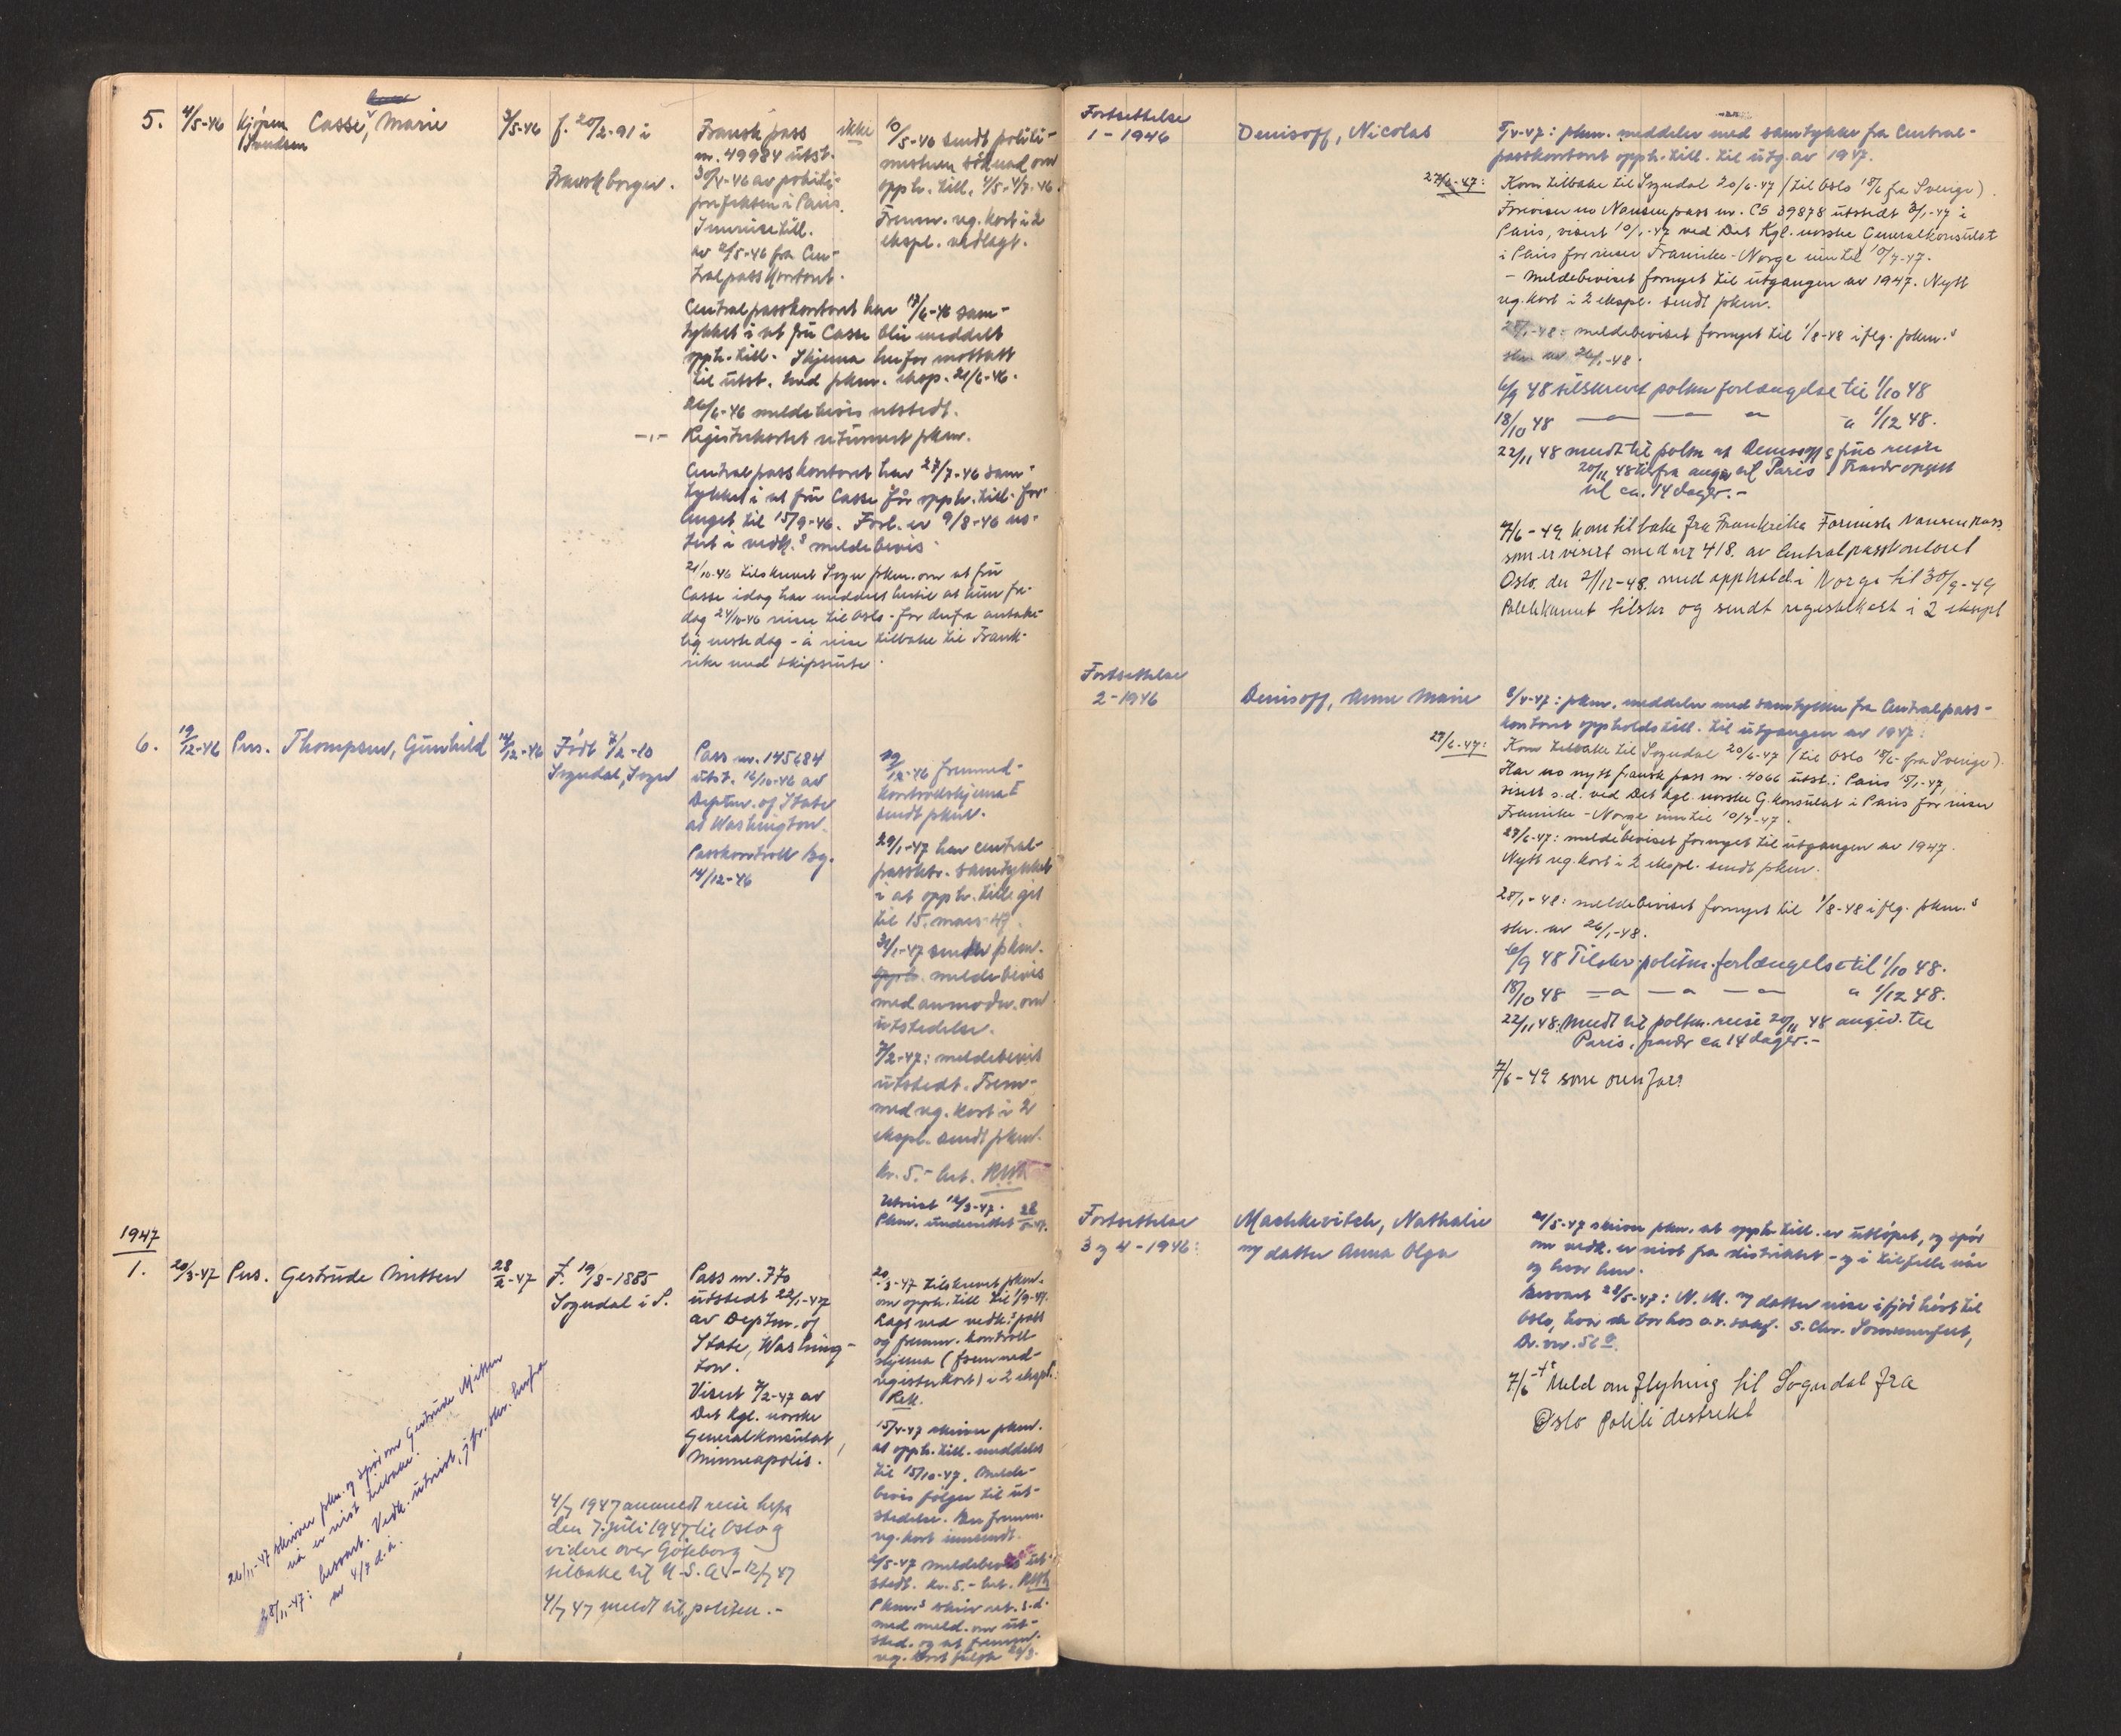 5. 4/5-46 Kjøpm. Knudsen
Casse, Marie
4/5-46 f. 20/2-91 i
Fransk borger.
Fransk pass
nr. 49984 utst.
30/4-46 av politi-
prefekten i Paris.
Innreisetill.
av 2/5-46 fra Cen-
tralpasskontoret.
Centralpasskontoret har 17/6-46 sam-
tykket i at fru Casse blir meddelt
opph. till. Skjema herfor mottatt
til utst. med pkm. eksp. 21/6-46.
26/6-46 meldebevis utstedt.
-"- Registerkortet returnert pkm.
Centralpasskontoret har 27/7-46 sam-
tykket i at fru Casse får opph. till. for-
lenget til 15/9-46. Forl. er 9/8-46 no-
tert i vedk.s meldebevis.
21/10-46 tilskrevet Sogn pkm. om at fru
Casse idag har meddelt hertil at hun fre-
dag 24/10-46 reiser til Oslo - for derfra antake-
lig neste dag - å reise tilbake til Frank-
rike med skipsrute.
ikke
10/5-46 sendt politi-
mesteren søknad om
opph. till. 4/5-4/8-46.
Fremm. reg. kort i 2
ekspl. vedlagt.
6. 19/12-46 Pers. Thompson, Gunhild 14/12-46
Født 7/2-10
Sogndal, Sogn
Pass nr. 145684
utst. 16/10-46 av
Deptm. of State
at Washington.
Passkontroll Bg.
14/12-46
12-46 fremmed-
kontrollskjema I
sendt pkm.
29/1-47 har central-
passktr. samtykket
i at opph. till. gis
til 15. mars-47.
31/1-47 sender pkm.
meldebevis
med anmodn. om
utstedelse.
7/2-47: meldebevis
utstedt. Frem-
med reg. kort i 2
ekspl. sendt pkm.
kr. 5.- bet.
Utreist 12/3-47.
Pkm. underrettet
1947
1. 20/3-47 Pers. Gertrude Mitten 28/2-47
f. 19/8-1885
Sogndal i S.
Pass nr. 770
utstedt 22/1-47
av Deptm. of
State, Washing-
ton.
Visert 7/2-47 av
Det kgl. norske
Generalkonsulat,
Minneapolis.
4/7 1947 anmeldt reise herfra
den 7. juli 1947 til Oslo og
videre over Göteborg
tilbake til U.S.A. - 12/7 47
4/7 47 meldt til politm. -
20/3-47 tilskrevet pkm.
om opph. till til 1/9-47.
Lagt ved vedk.s pass
og fremm. kontroll
skjema (fremmed-
registerkort) i 2 ekspl.
Rek.
15/4-47 skriver pkm.
at opph. till. meddeles
til 15/10-47. Melde-
bevis følger til ut-
stedelse. Ber fremm.
reg. kort innsendt.
5-47 meldebevis ut-
stedt. kr. 5.- bet.
Pkm.s skriv ret. s.d.
med meld. om ut-
sted. og at fremm.
reg. kort fulgte 20/3.
26/11-47 skriver pkm. og spør om Gertrude Mitten
nå er reist tilbake.
28/11-47: besvart. Vedk. utreist, jfr. skr. herfra
av 4/7 d.å.
Fortsettelse
1 - 1946
Denisoff, Nicolas
4-47: pkm. meddeler med samtykke fra Central-
passkontoret opph. till. til utg. av 1947.
27/6-47: Kom tilbake til Sogndal 20/6-47 (til Oslo 18/6 fra Sverige).
Foreviser no Nansenpass nr. CS 39878 utstedt 3/1-47 i
Paris, visert 10/1-47 ved Det Kgl. norske Generalkonsulat
i Paris for reiser Frankrike - Norge inntil 10/7-47.
- Meldebeviset fornyet til utgangen av 1947. Nytt
reg. kort i 2 ekspl. sendt pkm.
28/1-48: meldebeviset fornyet til 1/8-48 iflg. pkm.s
skr. av 26/1-48.
6/9 48 tilskrevet politm forlængelse til 1/10 48
18/10 48 — " — " — " " 1/12 48.
22/11 48 meldt til politm at Denisoff &amp; frue reiste
20/11 48 herfra angiv. til Paris. Fravær opgitt
til ca. 14 dager. -
7/6-49 kom tilbake fra Frankrike Foreviste Nansen pass
som er visert med nr 418. av Centralpasskontoret
Oslo den 21/12-48. med opphold i Norge til 30/9-49
Politikamret tilskr og sendt registerkort i 2 ekspl
Fortsettelse
2 - 1946
Denisoff, Anne Marie
4-47: pkm. meddeler med samtykke fra Centralpass-
kontoret oppholdstill. til utgangen av 1947.
27/6-47: Kom tilbake til Sogndal 20/6-47 (til Oslo 18/6 fra Sverige).
Har no nytt fransk pass nr. 4066 utst. i Paris 15/1-47,
visert s.d. ved Det kgl. norske G.konsulat i Paris for reiser
Frankrike - Norge inntil 10/7-47.
27/6-47: meldebeviset fornyet til utgangen av 1947.
Nytt reg. kort i 2 ekspl. sendt pkm.
28/1-48: meldebeviset fornyet til 1/8-48 iflg. pkm.s
skr. av 26/1-48.
6/9 48 Tilskr. politm. forlængelse til 1/10 48.
18/10 48 — " — " — " " 1/12 48.
22/11 48. Meldt til politm. reise 20/11 48 angiv. til
Paris, fravær ca 14 dager. -
7/6-49 som ovenfor
Fortsettelse
3 og 4 - 1946:
Machkevitch, Nathalie
og datter Anna Olga
21/5-47 skriver pkm. at opph. till. er utløpet, og spør
om vedk. er reist fra distriktet - og i tilfelle når
og hvor hen.
Besvart 28/5-47: N. M. og datter reise ifjor høst til
Oslo, hvor de bor hos o.r.sakf. S. Chr. Sommerfelt,
Dr. vn. 56
7/6 Meld om flytning til Sogndal fra
Oslo Politidistrikt